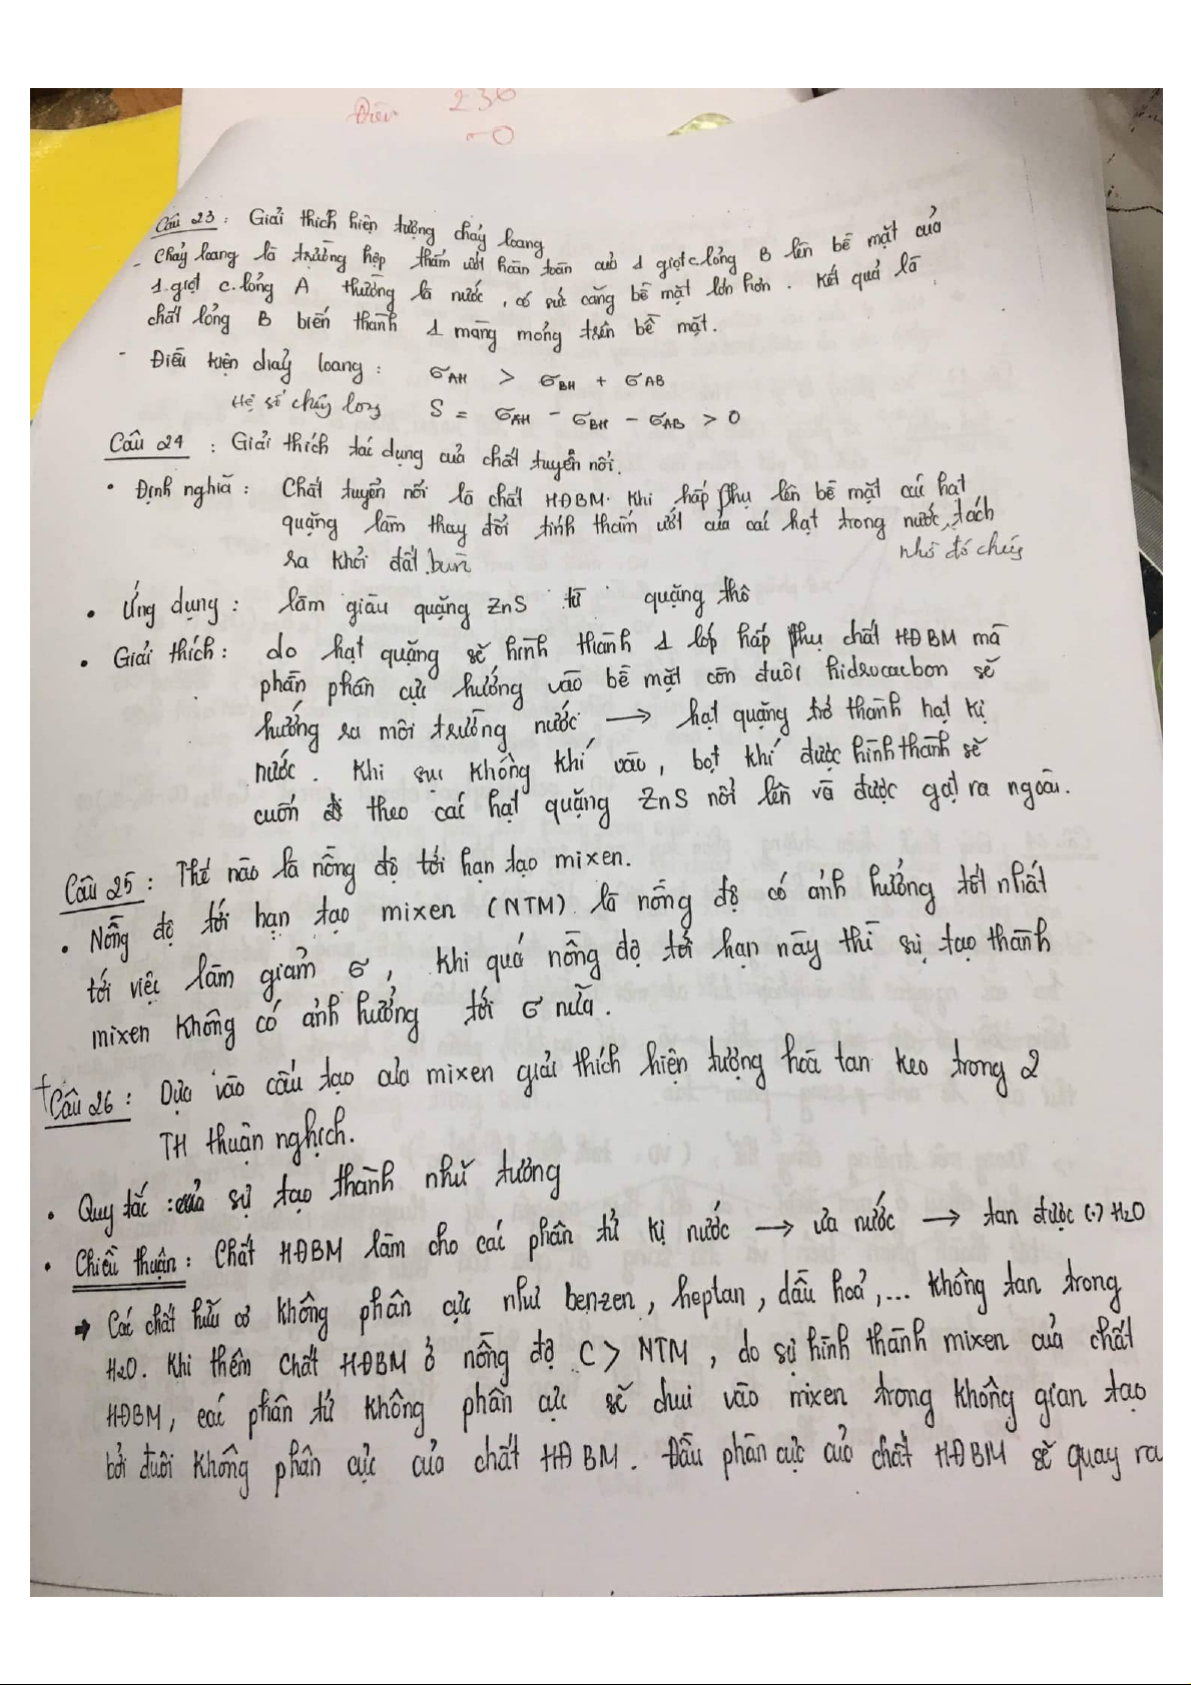 Điền 236
Câu 23 : Giải thích hiện tượng chảy loang
- Chảy loang là trường hợp thấm ướt hoàn toàn của 1 giọt c.lỏng B lên bề mặt của
1 giọt c.lỏng A thường là nước, có sức căng bề mặt lớn hơn. Kết quả là
chất lỏng B biến thành 1 màng mỏng trên bề mặt.
- Điều kiện chảy loang : σAH > σBH + σAB
Hệ số chảy loang S = σAH - σBH - σAB > 0
Câu 24 : Giải thích tác dụng của chất tuyển nổi.
• Định nghĩa : Chất tuyển nổi là chất HĐBM. Khi hấp phụ lên bề mặt các hạt
quặng làm thay đổi tính thấm ướt của các hạt trong nước, tách
ra khỏi đất bùn nhờ đó chúng
• Ứng dụng : làm giàu quặng ZnS từ quặng thô
• Giải thích : do hạt quặng sẽ hình thành 1 lớp hấp phụ chất HĐBM mà
phần phân cực hướng vào bề mặt còn đuôi hidrocacbon sẽ
hướng ra môi trường nước → hạt quặng trở thành hạt kị
nước. Khi sục không khí vào, bọt khí được hình thành sẽ
cuốn theo các hạt quặng ZnS nổi lên và được gạt ra ngoài.
Câu 25 : Thế nào là nồng độ tới hạn tạo mixen.
• Nồng độ tới hạn tạo mixen (NTM) là nồng độ có ảnh hưởng tốt nhất
tới việc làm giảm σ, khi quá nồng độ tới hạn này thì sự tạo thành
mixen không có ảnh hưởng tới σ nữa.
+ Câu 26 : Dựa vào cấu tạo của mixen giải thích hiện tượng hoà tan keo trong 2
TH thuận nghịch.
• Quy tắc : của sự tạo thành nhũ tương
• Chiều thuận : Chất HĐBM làm cho các phân tử kị nước → ưa nước → tan được (.) H2O
→ Các chất hữu cơ không phân cực như benzen, heptan, dầu hoả,... không tan trong
H2O. Khi thêm chất HĐBM ở nồng độ C > NTM, do sự hình thành mixen của chất
HĐBM, các phân tử không phân cực sẽ chui vào mixen trong không gian tạo
bởi đuôi không phân cực của chất HĐBM. Đầu phân cực của chất HĐBM sẽ quay ra